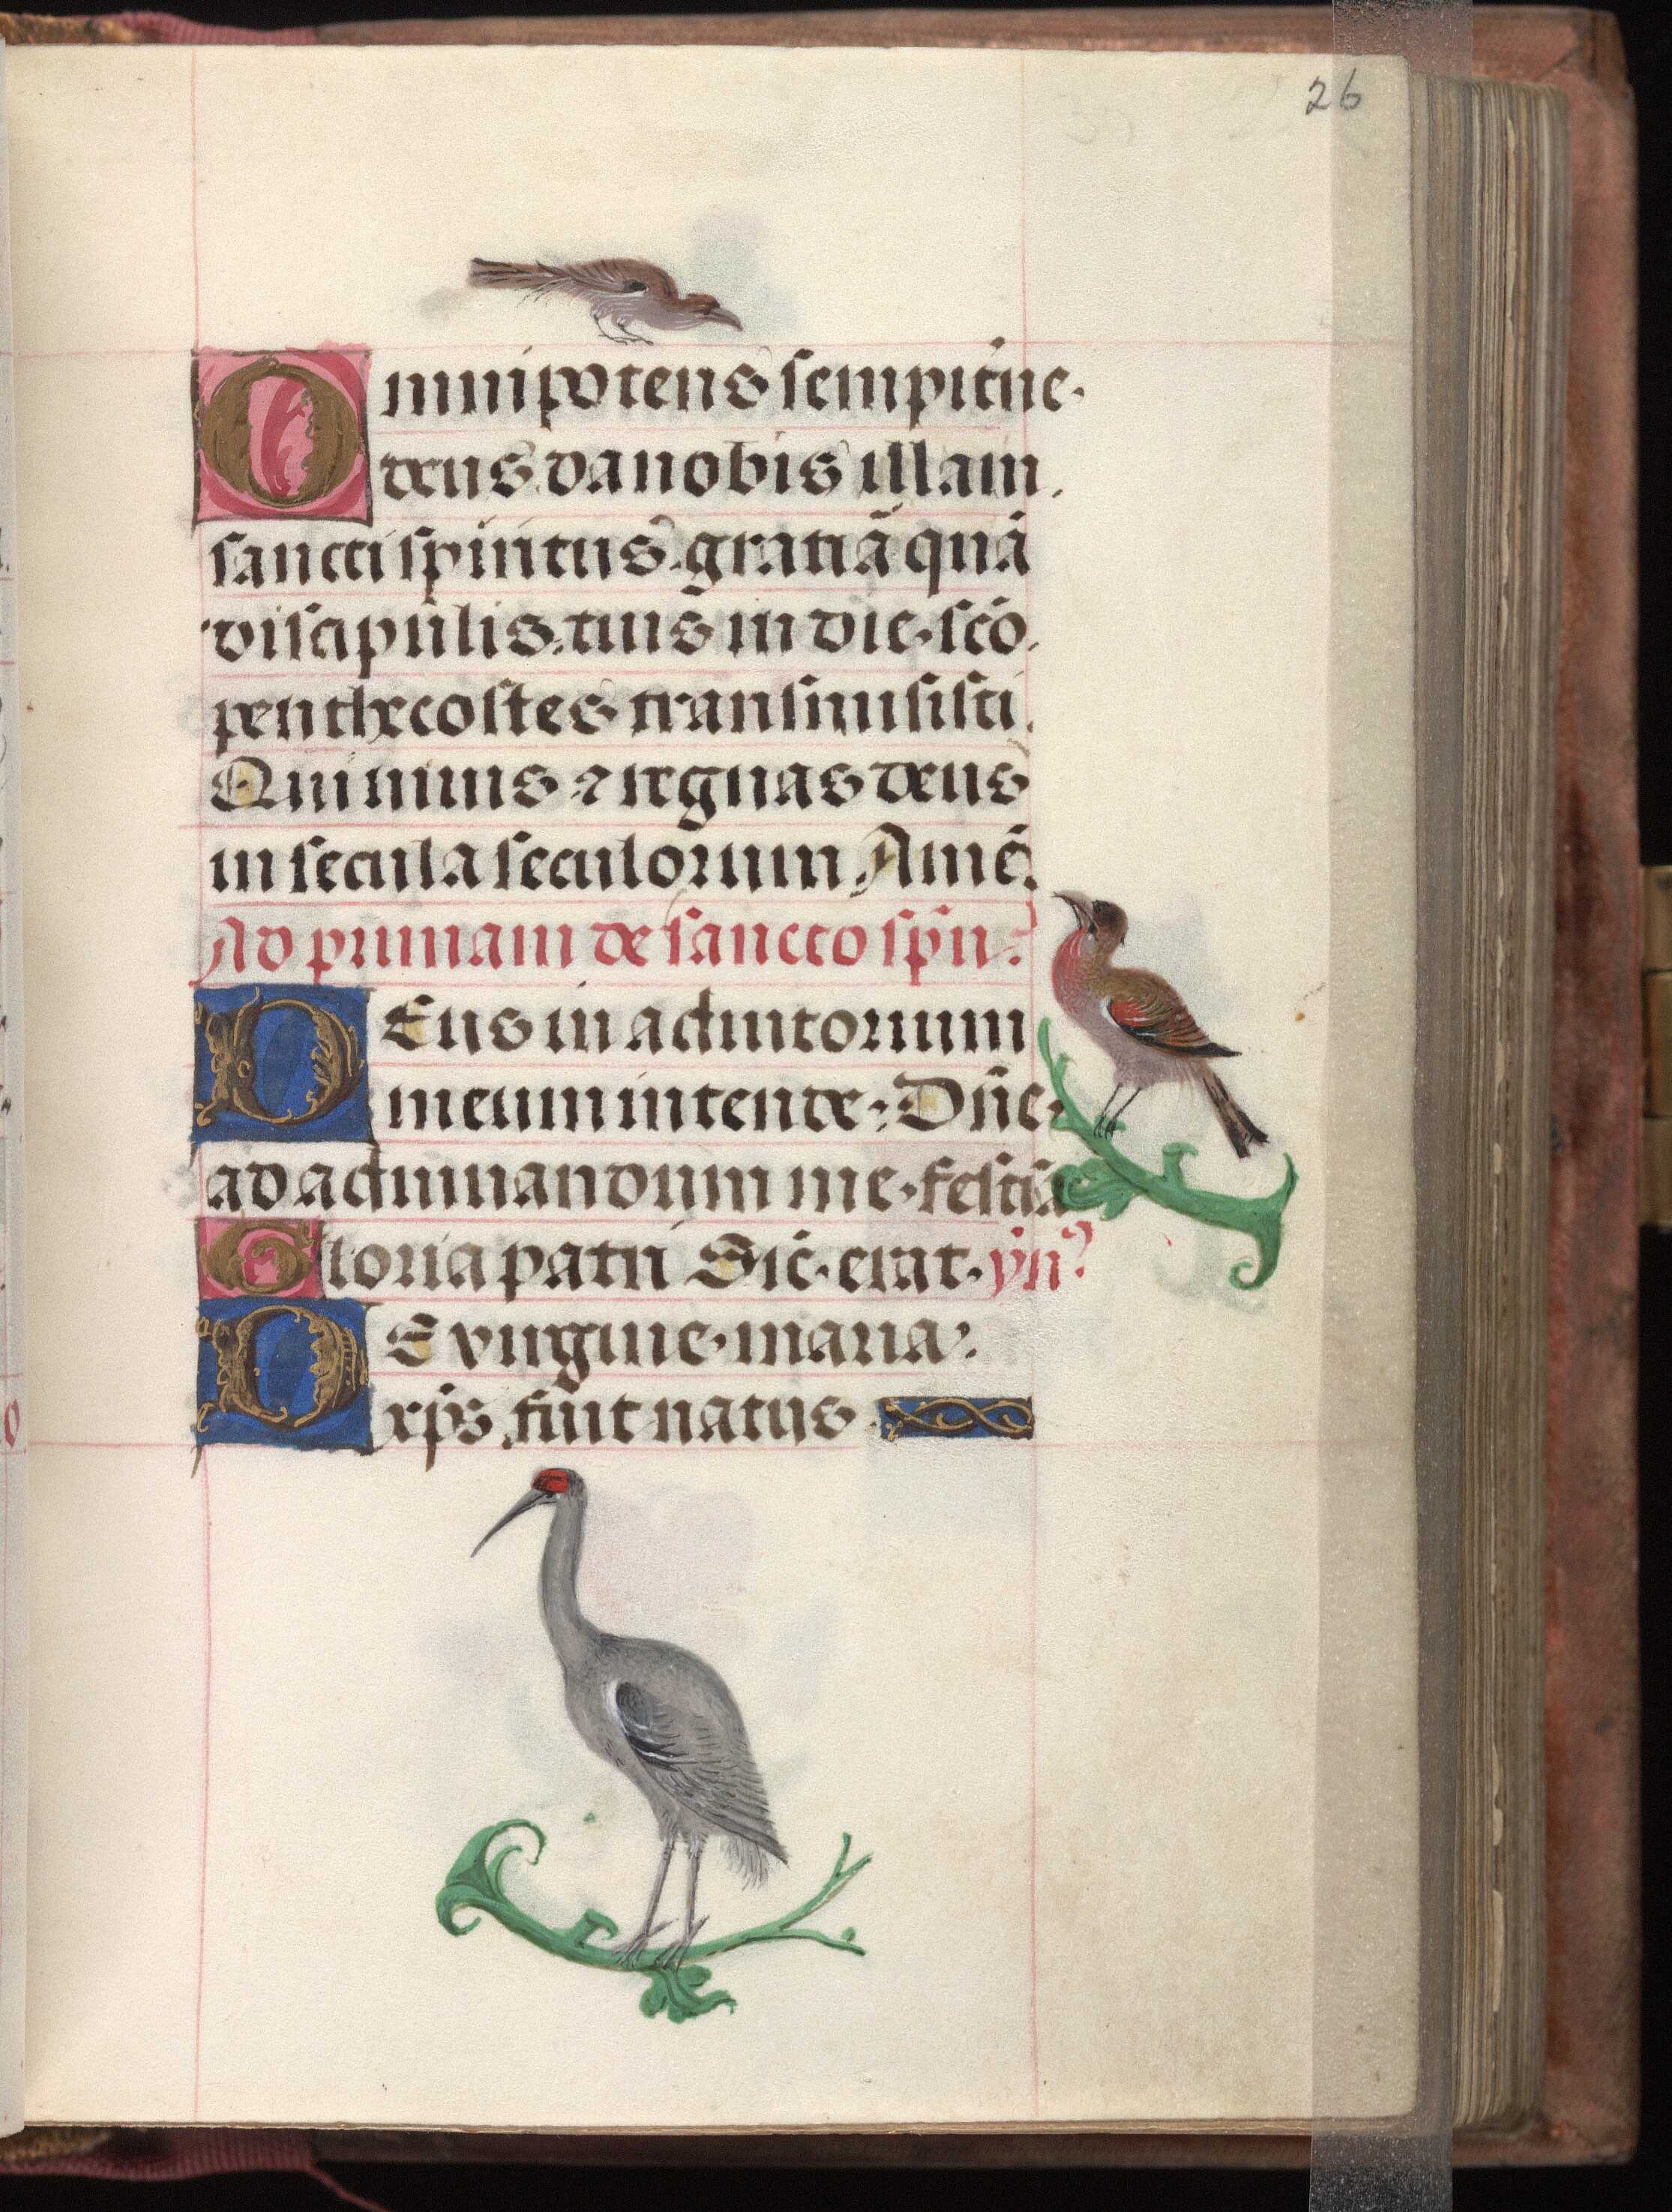 26
Omnipotens sempitñe.
deus da nobis illam.
sancti spiritus. gratiā quā
discipulis. tuis in die. scō.
penthecostes transmisisti.
Qui viuis ⁊ regnas deus
in secula seculorum Amē.
Ad primam de sancto spū.
DEus in adiutorium
meum intende. Dñe.
ad adiuuandum me. festiā
Gloria patri Sic̄. erat. ÿn̄?
DE virgine. maria.
xp̄s fuit natus